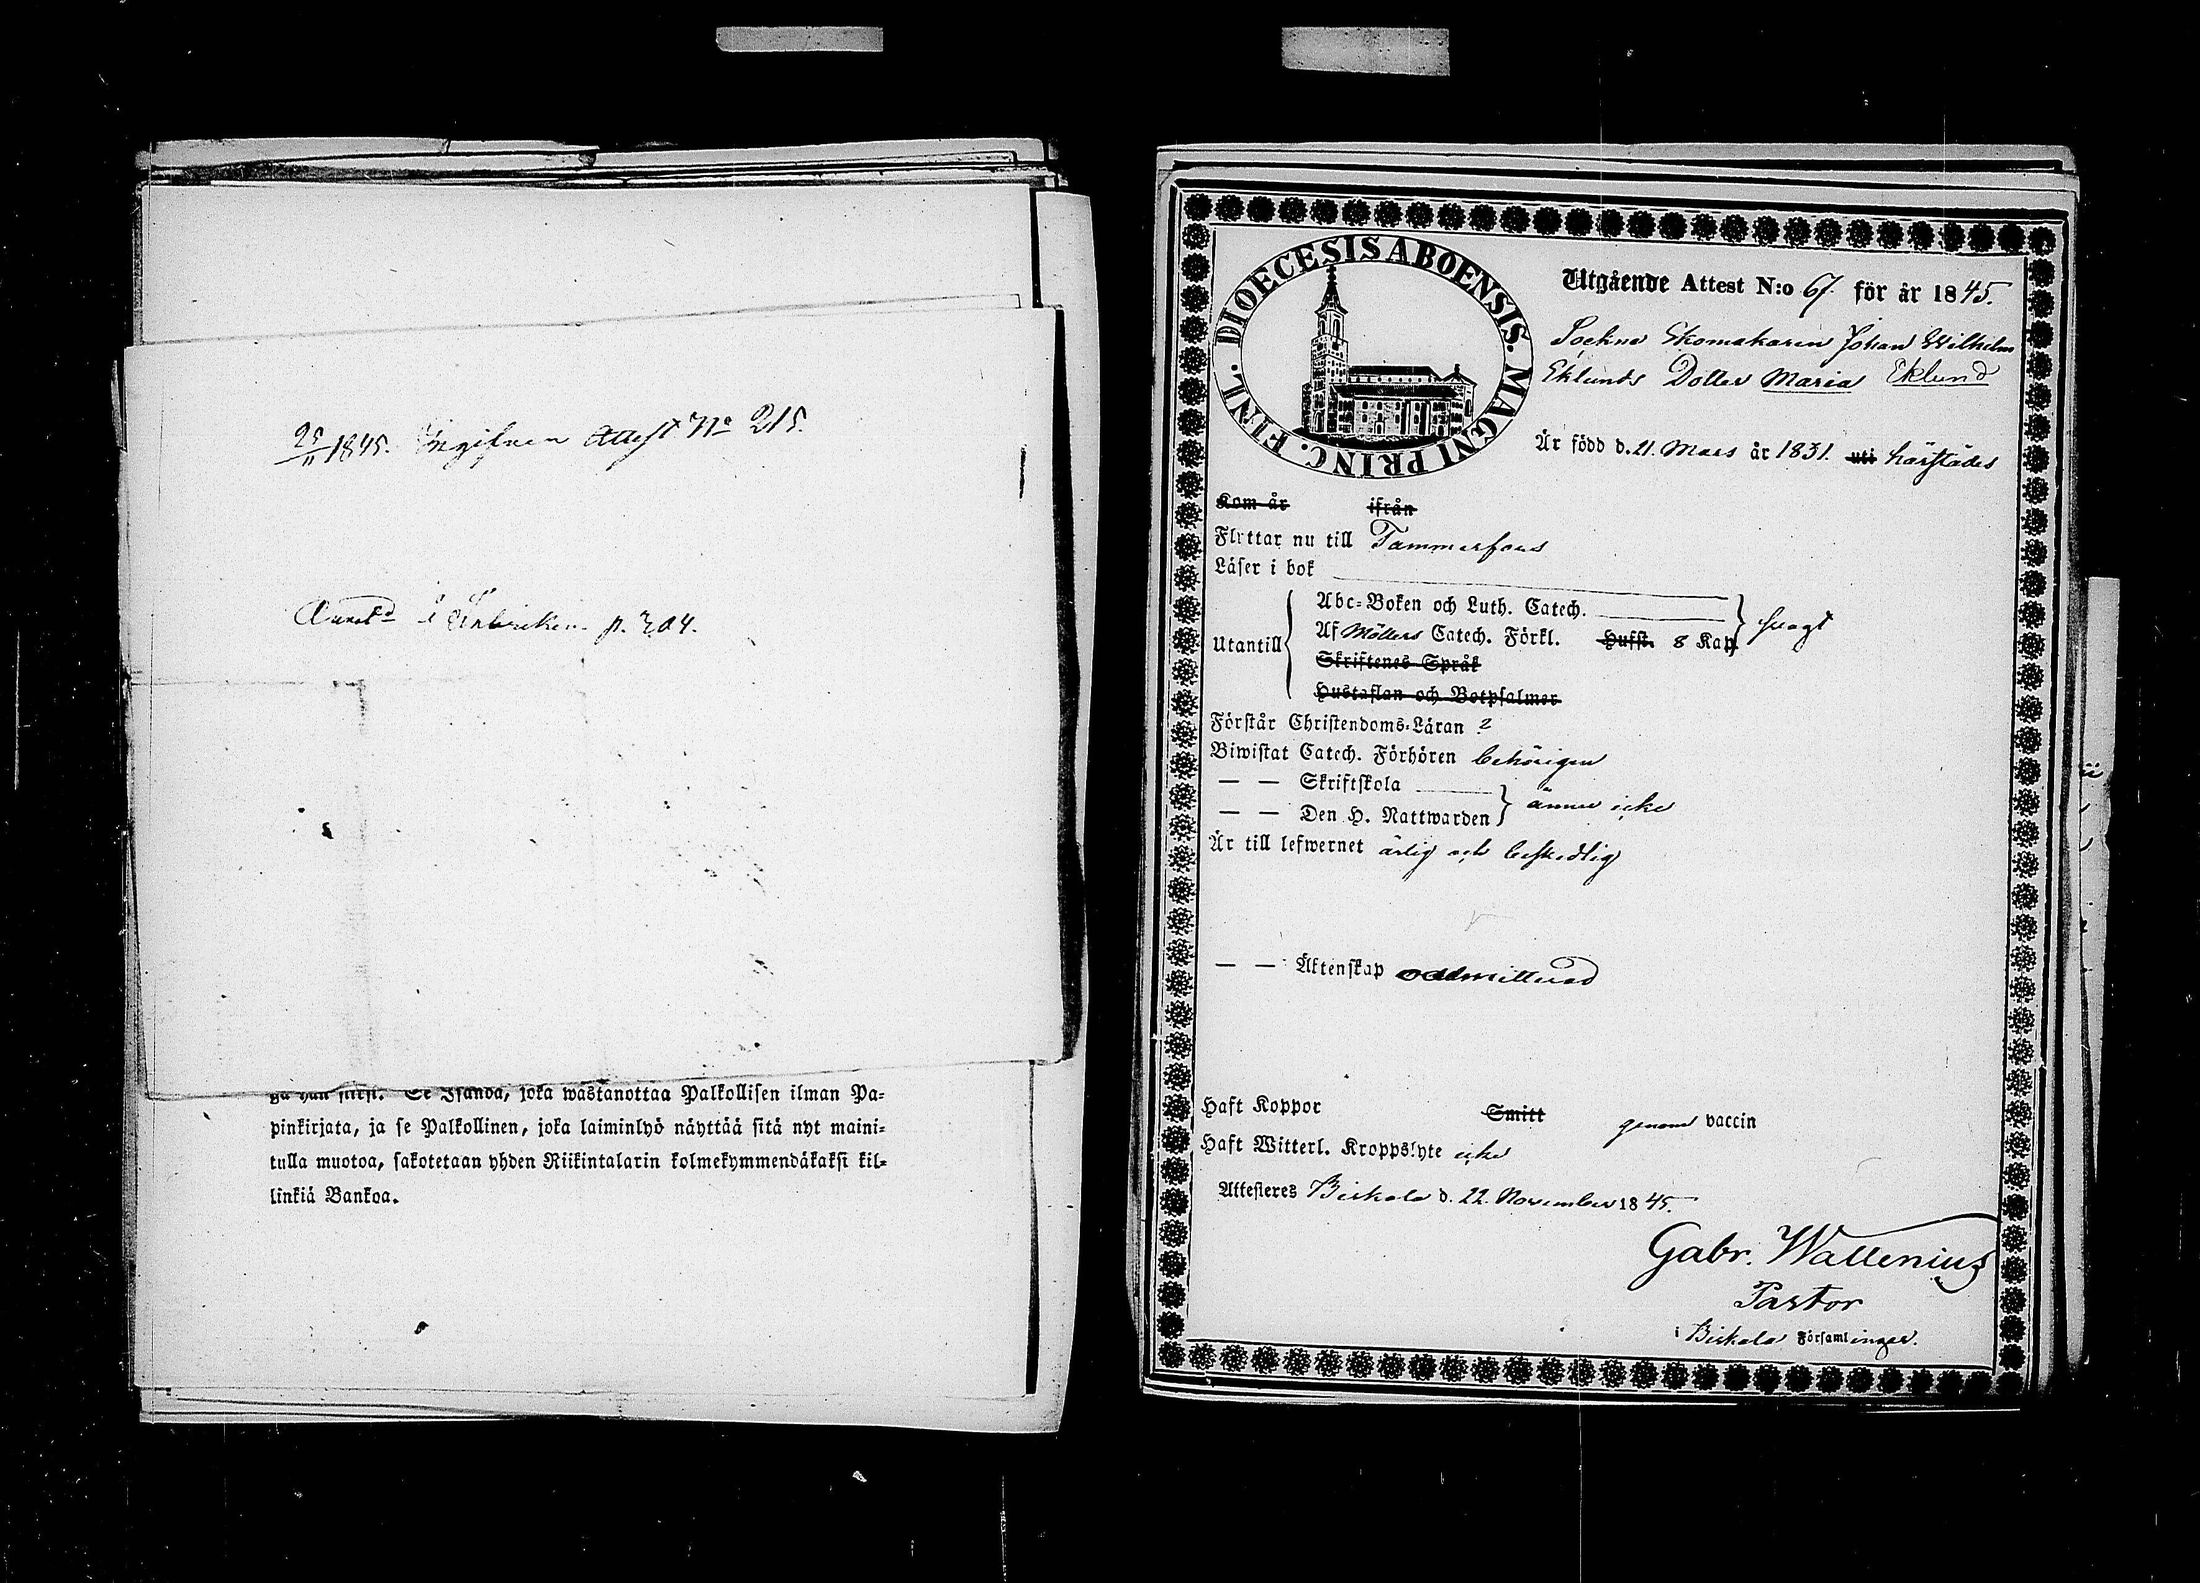 25/11 1845. Ingifven Attest No 215.
i Fabriken p. 304.
Se Isändä, joka wastanottaa Palkollisen ilman Pa-
pinkirjata, ja se Palkollinen, joka laiminlyö näyttää sitä nyt maini-
tulla muotoa, sakotetaan yhden Riikintalarin kolmekymmendäkaksi kil-
linkiä Bankoa.
DIOECESIS ABOENSIS. MAGNI PRINC. FINL.
Utgående Attest N:o 67. för år 1845.
Sockne Skomakaren Johan Wilhelm
Eklunds Dotter Maria Eklund
Är född d. 21. Mars år 1831. uti härstädes
Kom år ifrån
Flyttar nu till Tammerfors
Läser i bok
Utantill
Abc-Boken och Luth. Catech.
Af Möllers Catech. Förkl. Hufst. 8 Kap. svagt
Skriftenes Språk
Hustaflan och Botpsalmer
Förstår Christendoms-Läran ?
Biwistat Catech. Förhören behörigen
— — Skriftskola
— — Den H. Nattwarden ännu icke
Är till lefwernet ärlig och beskedlig
— — Äktenskap oadmitterad
Haft Koppor Smitt genom vaccin
Haft Witterl. Kroppslyte icke
Attesteres Birkala d. 22. November 1845.
Gabr. Wallenius
Pastor
i Birkala Församlingar.